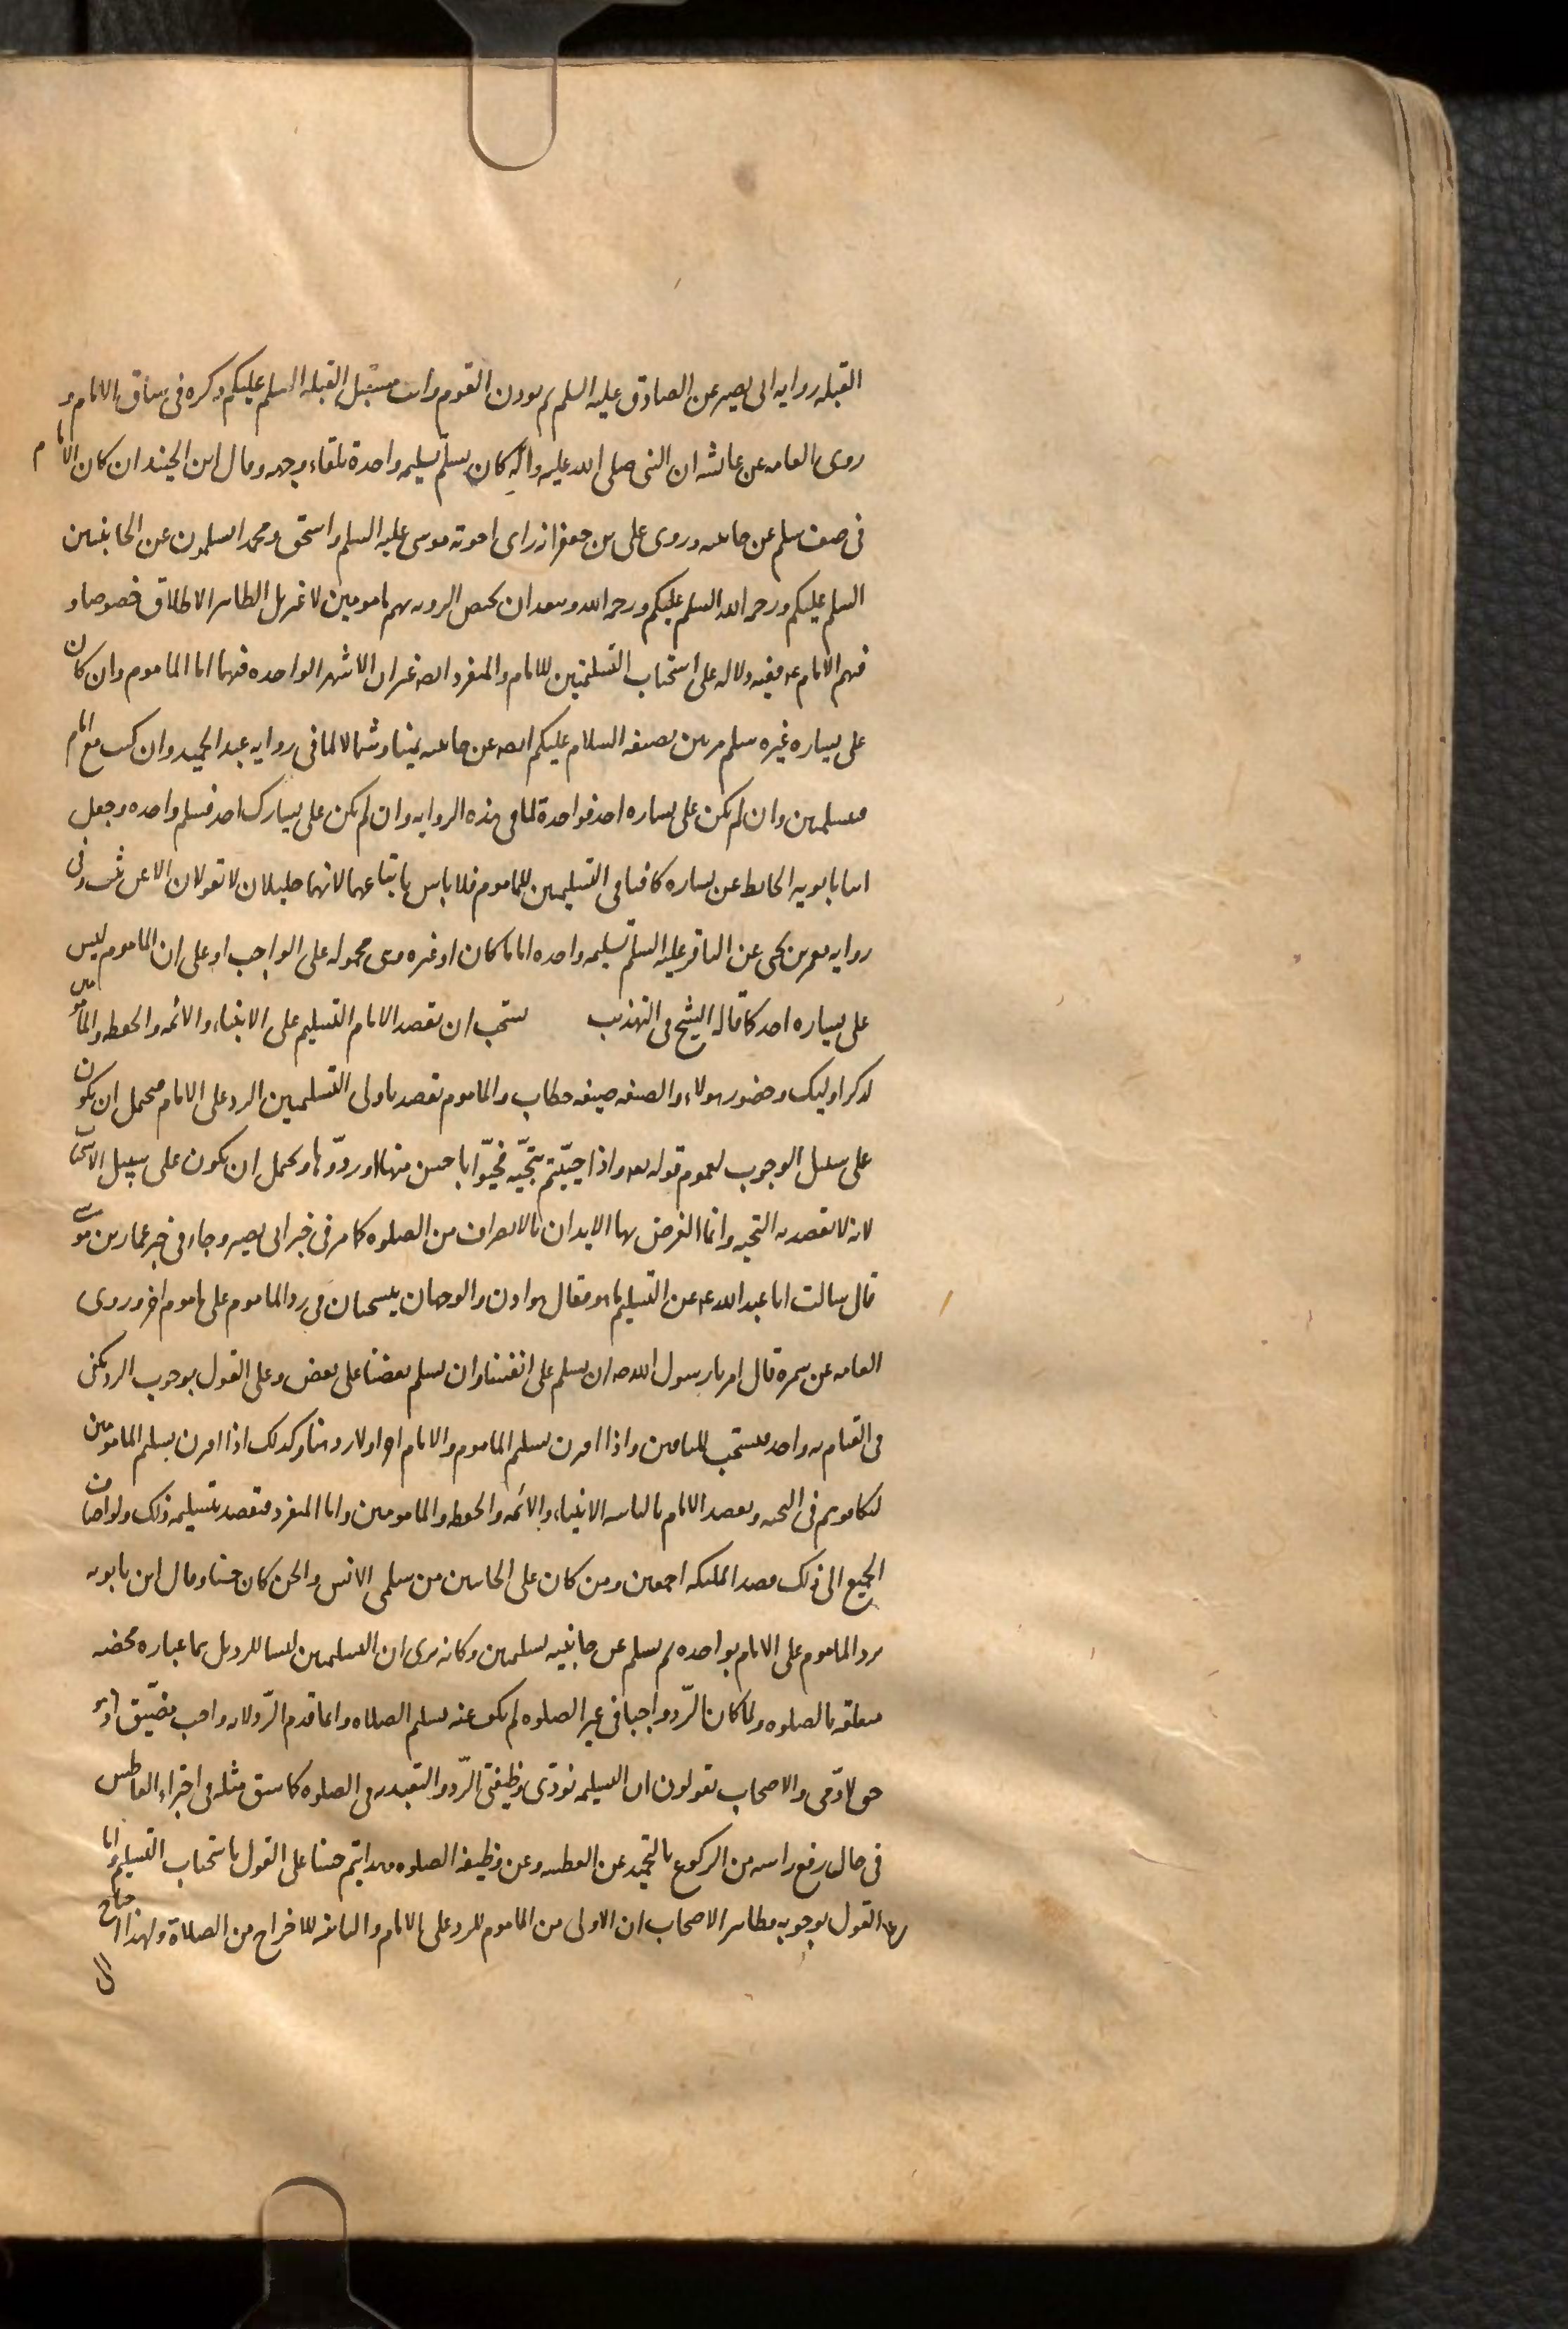 القبله روايه ابى بصير عن الصادق عليه السلم ثم يوذن القوم وانت مستقبل القبله السلم عليكم وذكره فى سياق الامام و
روى العامه عن عائشه ان النبى صلى الله عليه واله كان يسلم تسليمه واحدة تلقاء وجهه وقال ابن الجنيد ان كان الامام
فى صف سلم عن جانبيه وروى على بن جعفر انه راى اخوته موسى عليه السلم واسحق ومحمدا يسلمون عن الجانبين
السلم عليكم ورحمه الله السلم عليكم ورحمه الله ويبعد ان يختص الرويه بهم مامومين لا غير بل الظاهر الاطلاق خصوصا و
فيهم الامام ع ففيه دلاله على استحباب التسليمتين للامام والمنفرد ايضا غير ان الاشهر الواحده فيهما اما الماموم وان كان
على يساره غيره سلم مرتين بصيغه السلام عليكم ايضا عن جانبيه يمينا وشمالا لما فى روايه عبد الحميد وان كنت مع امام
فتسليمتين وان لم يكن على يساره احد فواحدة لما فى هذه الروايه وان لم يكن على يسارك احد فسلم واحده وجعل
ابنا بابويه الحائط عن يساره كافيا فى التسليمتين للماموم فلا باس باتباعهما لانهما جليلان لا تقولان الا عن ثبت وفى
روايه معمر بن يحيى عن الباقر عليه السلم تسليمه واحده اماما كان او غيره وهى محموله على الواجب او على ان الماموم ليس
على يساره احد كما قاله الشيخ فى التهذيب يستحب ان يقصد الامام التسليم على الانبياء والائمه والحفظه والمامومين
لذكر اوليك وحضور هولاء والصيغه صيغه خطاب والماموم يقصد باولى التسليمتين الرد على الامام فيحتمل ان يكون
على سبيل الوجوب لعموم قوله تعالى واذا حييتم بتحيه فحيوا باحسن منها او ردوها ويحتمل ان يكون على سبيل الاستحباب
لانه لا يقصد به التحيه وانما الغرض بها الايذان بالانصراف من الصلوه كما مر فى خبر ابى بصير وجاء فى خبر عمار بن موسى
قال سالت ابا عبد الله ع عن التسليم ما هو فقال هو اذن والوجهان ينسحبان فى رد الماموم على ماموم اخر وروى
العامه عن سمره قال امرنا رسول الله ص ان نسلم على انفسنا وان يسلم بعضنا على بعض وعلى القول بوجوب الرد يكفى
فى القيام به واحد فيستحب للباقين واذا اقترن تسليم الماموم والامام اجزا ولا رد هنا وكذلك اذا اقترن تسليم المامومين
لتكافوهم فى التحيه ويقصد الامام بالثانيه الانبياء والائمه والحفظه والمامومين واما المنفرد فيقصد بتسليمه ذلك ولو اضاف
الجميع الى ذلك قصد الملئكه اجمعين ومن كان على الجانبين من مسلمى الانس والجن كان حسنا وقال ابن بابويه
يرد الماموم على الامام بواحده ثم يسلم عن جانبيه تسليمتين وكانه يرى ان التسليمتين ليستا للرد بل هما عباره محضه
متعلقه بالصلوه ولما كان الرد واجبا فى غير الصلوه لم يكف عنه تسليم الصلاه وانما قدم الرد لانه واجب مضيق اذ هو
حق لادمى والاصحاب يقولون ان التسليمه تودى وظيفتى الرد والتعبد به فى الصلوه كما سبق مثله فى اجتزاء العاطس
فى حال رفع راسه من الركوع بالتحميد عن العطسه وعن وظيفه الصلوه وهذا يتم حسنا على القول باستحباب التسليم واما
على القول بوجوبه فظاهر الاصحاب ان الاولى من الماموم للرد على الامام والثانيه للاخراج من الصلاة ولهذا احتاج
الى